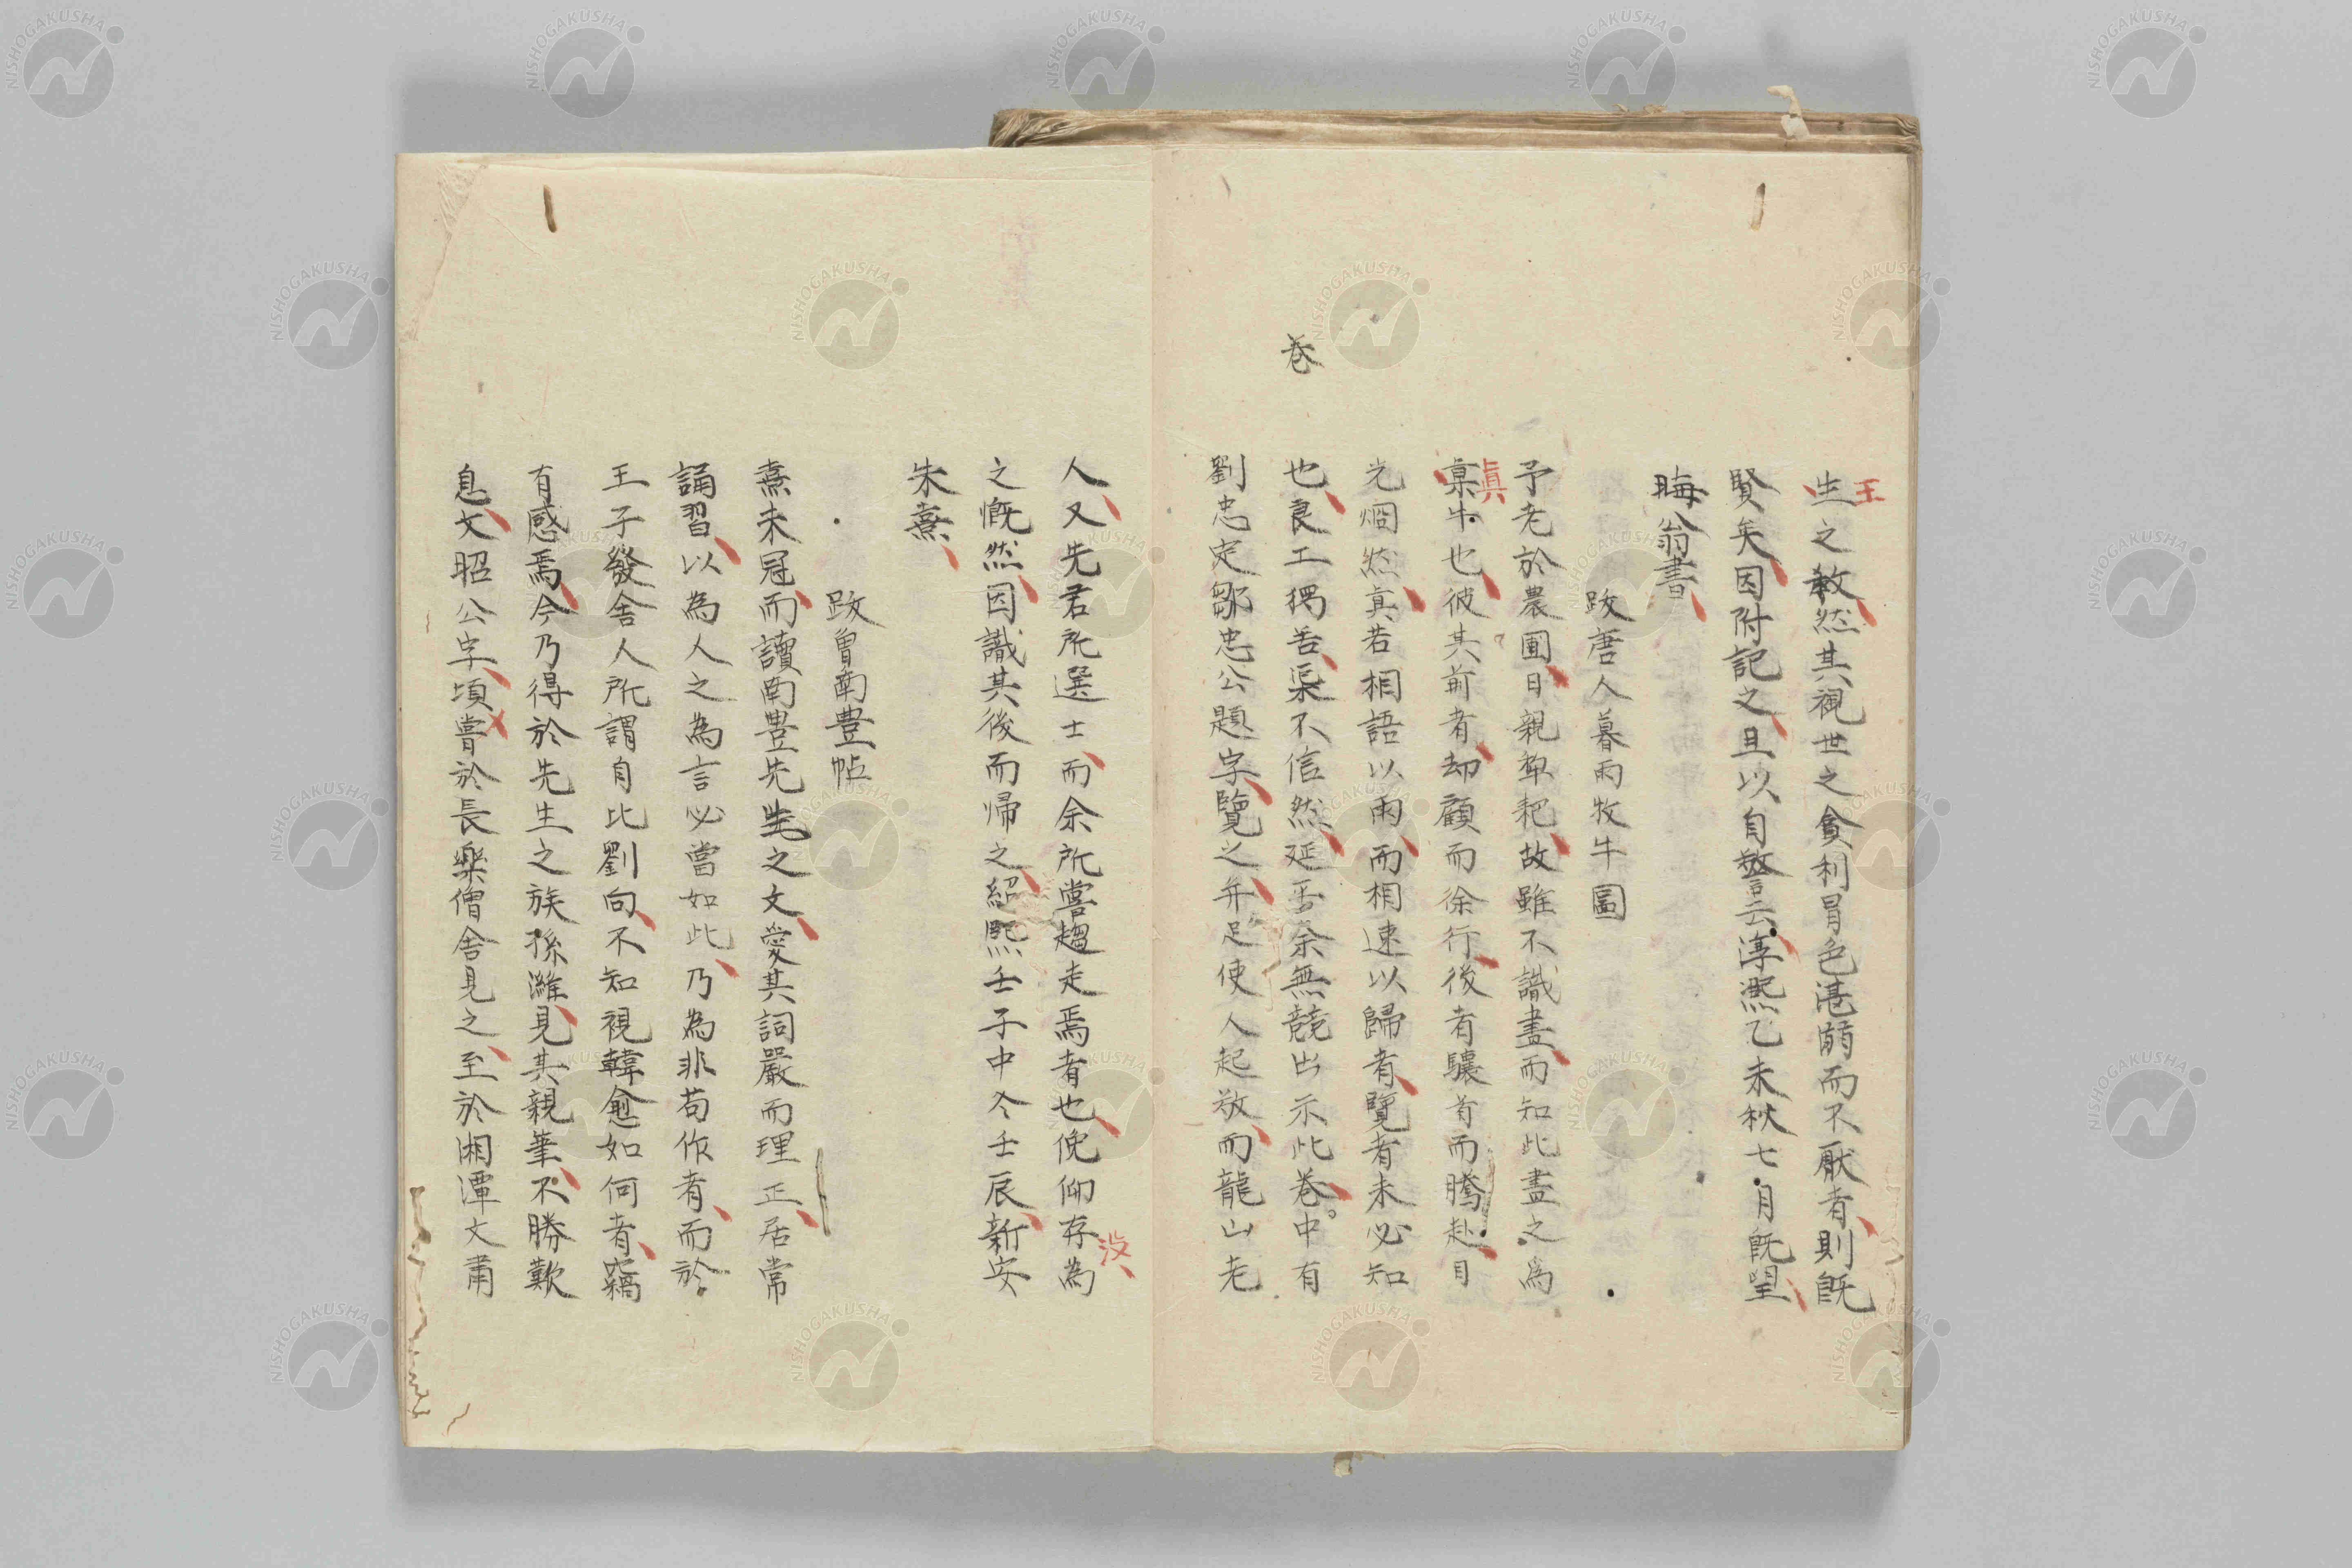 生之教然其視世之貪利冒色湛溺而不厭者則既
王
賢矣因附記之且以自警云淳熙乙未秋七月既望
晦翁書
跋唐人暮雨牧牛圖
予老於農圃日親犂耙故雖不識畫而知此畫之為
真
牛也彼其前者却顧而徐行後者驤首而騰赴目
光烱然真若相語以雨而相速以歸者覽者未必知
也良工獨苦渠不信然延平余無競出示此卷中有
卷
劉忠定鄒忠公題字覽之并足使人起敬而龍山老
人又先君所選士而余所嘗趨走焉者也俛仰存為
没
之慨然因識其後而帰之紹熙壬子中冬壬辰新安
朱熹
跋曾南豊帖
熹未冠而讀南豊先生之文愛其詞嚴而理正居常
誦習以為人之為言必當如此乃為非苟作者而於
王子發舍人所謂自比劉向不知視韓愈如何者竊
有感焉今乃得於先生之族孫濰見其親筆不勝歎
息文昭公字頃嘗於長樂僧舍見之至於湘潭文肅
NISHOGAKUSHA